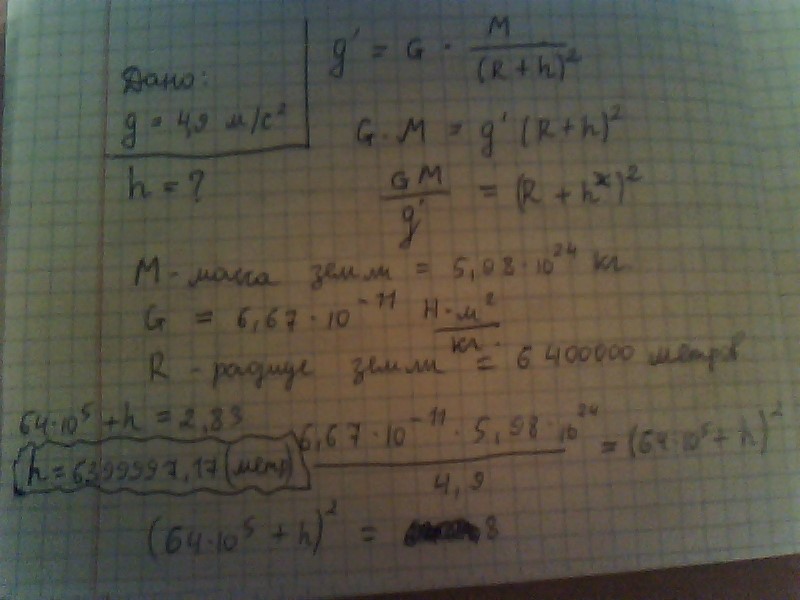 Дано:
g = 4,9 м/с²
h = ?
g' = G · M / (R + h)²
G · M = g' (R + h)²
GM / g' = (R + h)²
M - масса земли = 5,98 · 10²⁴ кг
G = 6,67 · 10⁻¹¹ Н·м² / кг
R - радиус земли = 6 400000 метров
64·10⁵ + h = 2,83
h = 6399997,17 (метр)
6,67 · 10⁻¹¹ · 5,98 · 10²⁴ / 4,9 = (64·10⁵ + h)²
(64·10⁵ + h)² = 8